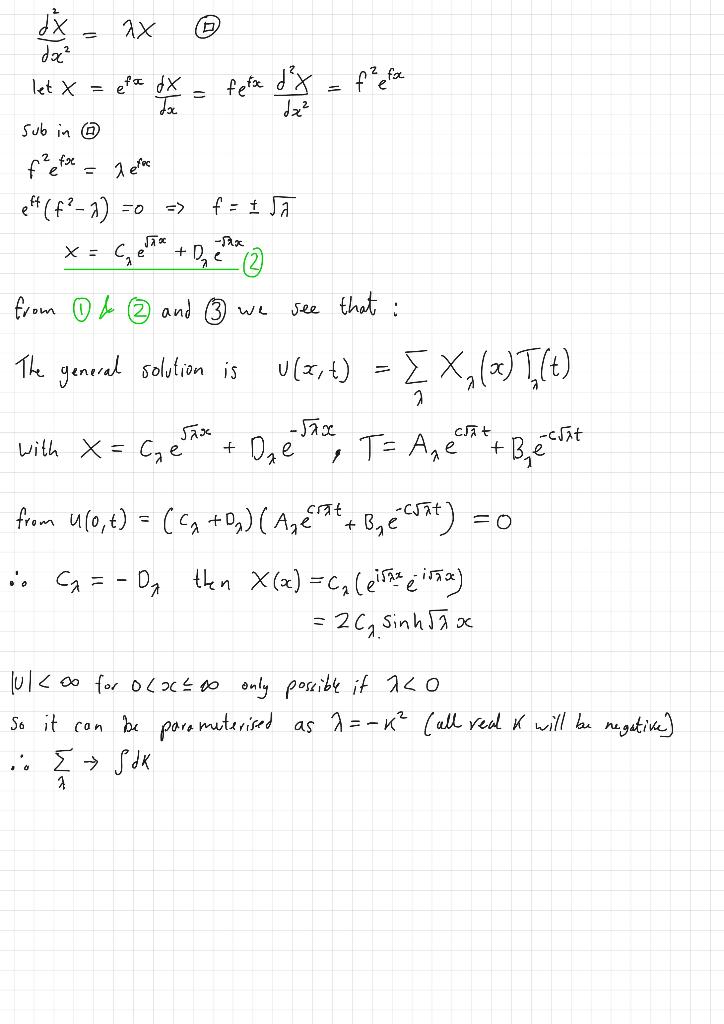 d²X/dx² = λX ⊡
let X = e^{fx} dX/dx = fe^{fx} d²X/dx² = f²e^{fx}
Sub in ⊡
f²e^{fx} = λe^{fx}
e^{ft}(f²-λ) = 0 => f = ± √λ
X = C_λ e^{√λx} + D_λ e^{-√λx} ②
from ① & ② and ③ we see that :
The general solution is U(x,t) = Σ_λ X_λ(x)T_λ(t)
with X = C_λ e^{√λx} + D_λ e^{-√λx}, T = A_λ e^{c√λt} + B_λ e^{-c√λt}
from U(0,t) = (C_λ + D_λ)(A_λ e^{c√λt} + B_λ e^{-c√λt}) = 0
∴ C_λ = -D_λ then X(x) = C_λ(e^{i√λx} - e^{-i√λx})
= 2C_λ sinh√λ x
|U| < ∞ for 0 < x ≤ ∞ only possible if λ < 0
So it can be parameterised as λ = -K² (all real K will be negative)
∴ Σ_λ → ∫dK